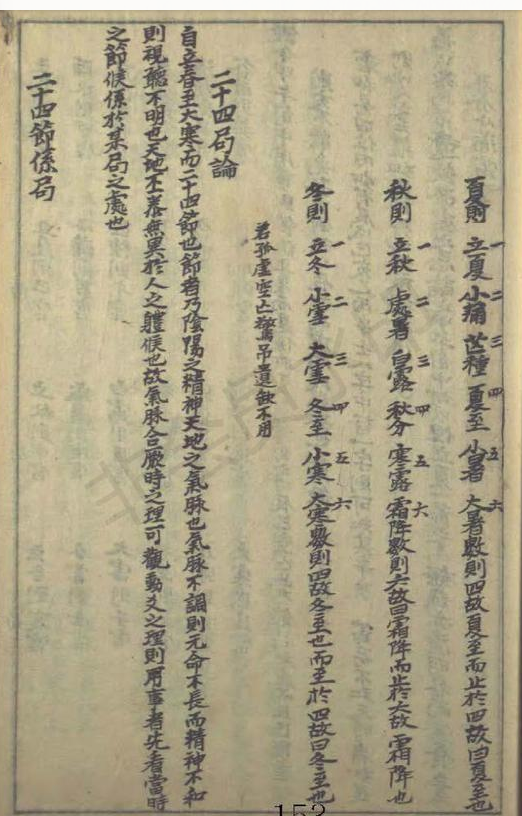 夏則 立夏一 小滿二 芒種三 夏至四 小暑五 大暑六 數則四故夏至而止於四故曰夏至也
秋則 立秋一 處暑二 白露三 秋分四 寒露五 霜降六 數則六故曰霜降而止於六故霜降也
冬則 立冬一 小雪二 大雪三 冬至四 小寒五 大寒六 數則四故冬至也而至於四故曰冬至也
若孤虛空亡 吊 不用
二十四局論
自立春至大寒而二十四節也節者乃陰陽之精神天地之氣脉也氣脉不調則元命不長而精神不和
則視聽不明也天地不養無異於人之軆候也故氣脉合厥時之理可觀動爻之理則用事者先看當時
之節候係於某局之處也
二十四節係局
152